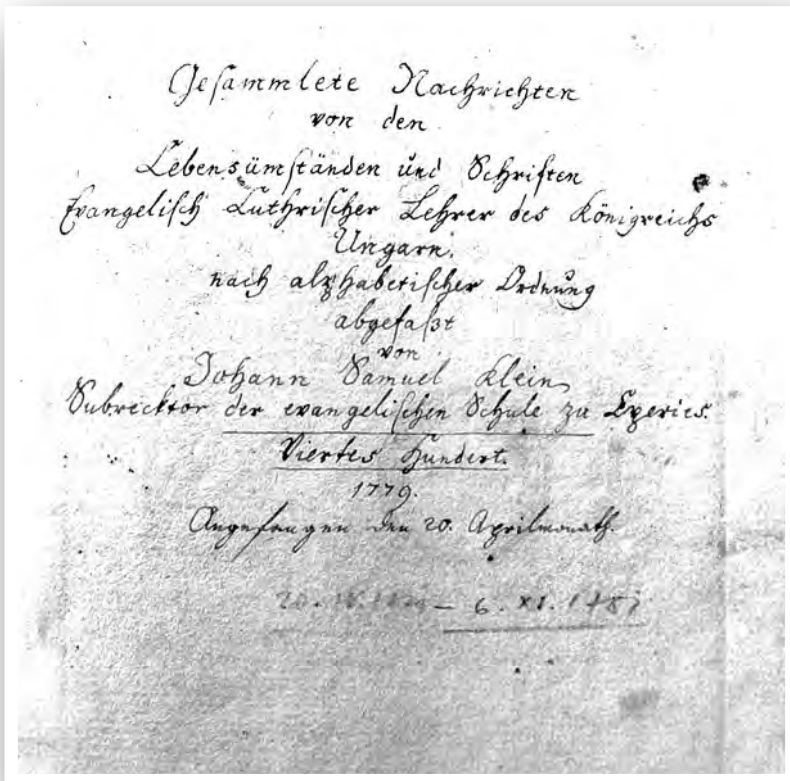 Gesammlete Nachrichten
von den
Lebensümständen und Schriften
Evangelisch Luthrischer Lehrer des Königreichs
Ungarn.
nach alphabetischer Ordnung
abgefaßt
von
Johann Samuel Klein
Subrecktor der evangelischen Schule zu Eperies.
Viertes Hundert.
1779.
Angefangen den 20. Aprilmonath.
– 6. XI. 1787